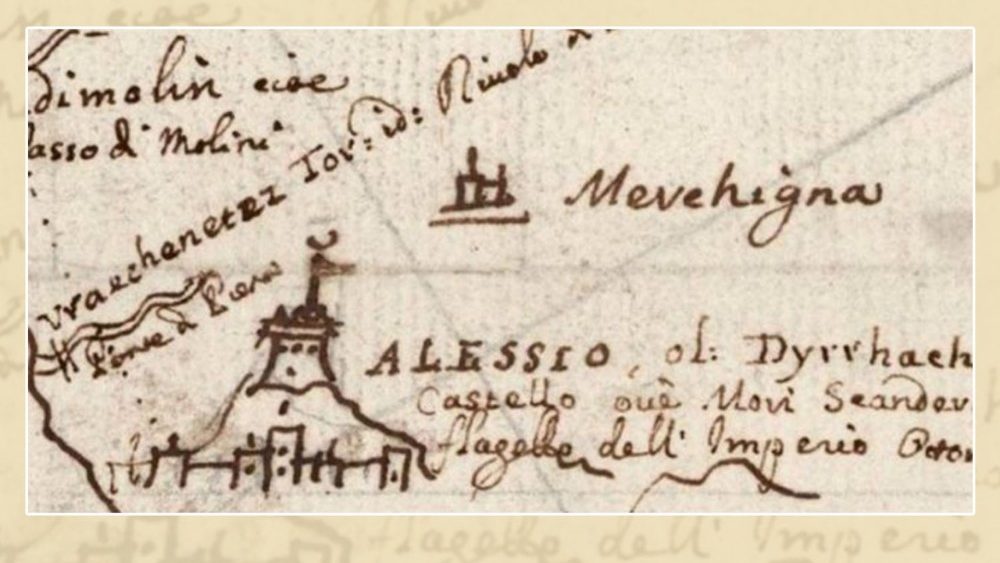 dimolin cioe
asso di Molini
Vraechenetzi Tor: id: Rivolo d
Ponte d
Mevehigna
ALESSIO, ol: Dyrrhach
Castello ouè Morì Scander
flagello dell' Imperio Otto